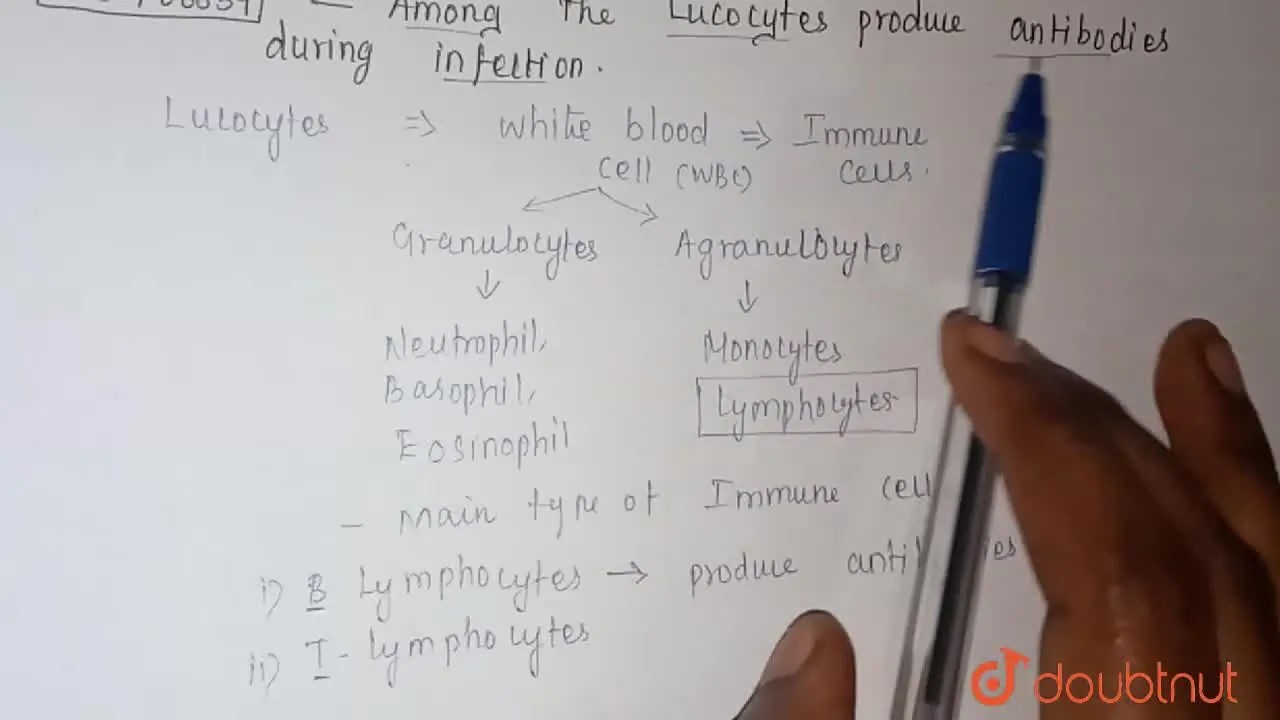 Among The Lucocytes produce antibodies
during infection.
Lucocytes ⇒ white blood ⇒ Immune
cell (WBC) cells.
Granulocytes Agranulocytes
Neutrophil, Monocytes
Basophil, Lymphocytes
Eosinophil
- Main type of Immune cell
i) B Lymphocytes → produce
ii) T - lymphocytes
doubtnut